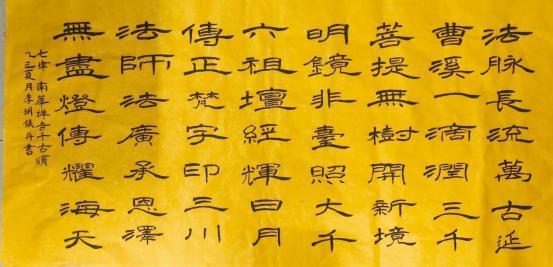 法脉長流萬古延
曹溪一滴潤三千
菩提無樹開新境
明鏡非臺照大千
六祖壇經輝日月
傳正梵宇印三川
法師法廣承恩澤
無盡燈傳耀海天
七律南華禪寺千古頌
乙巳夏月李明鎂并書